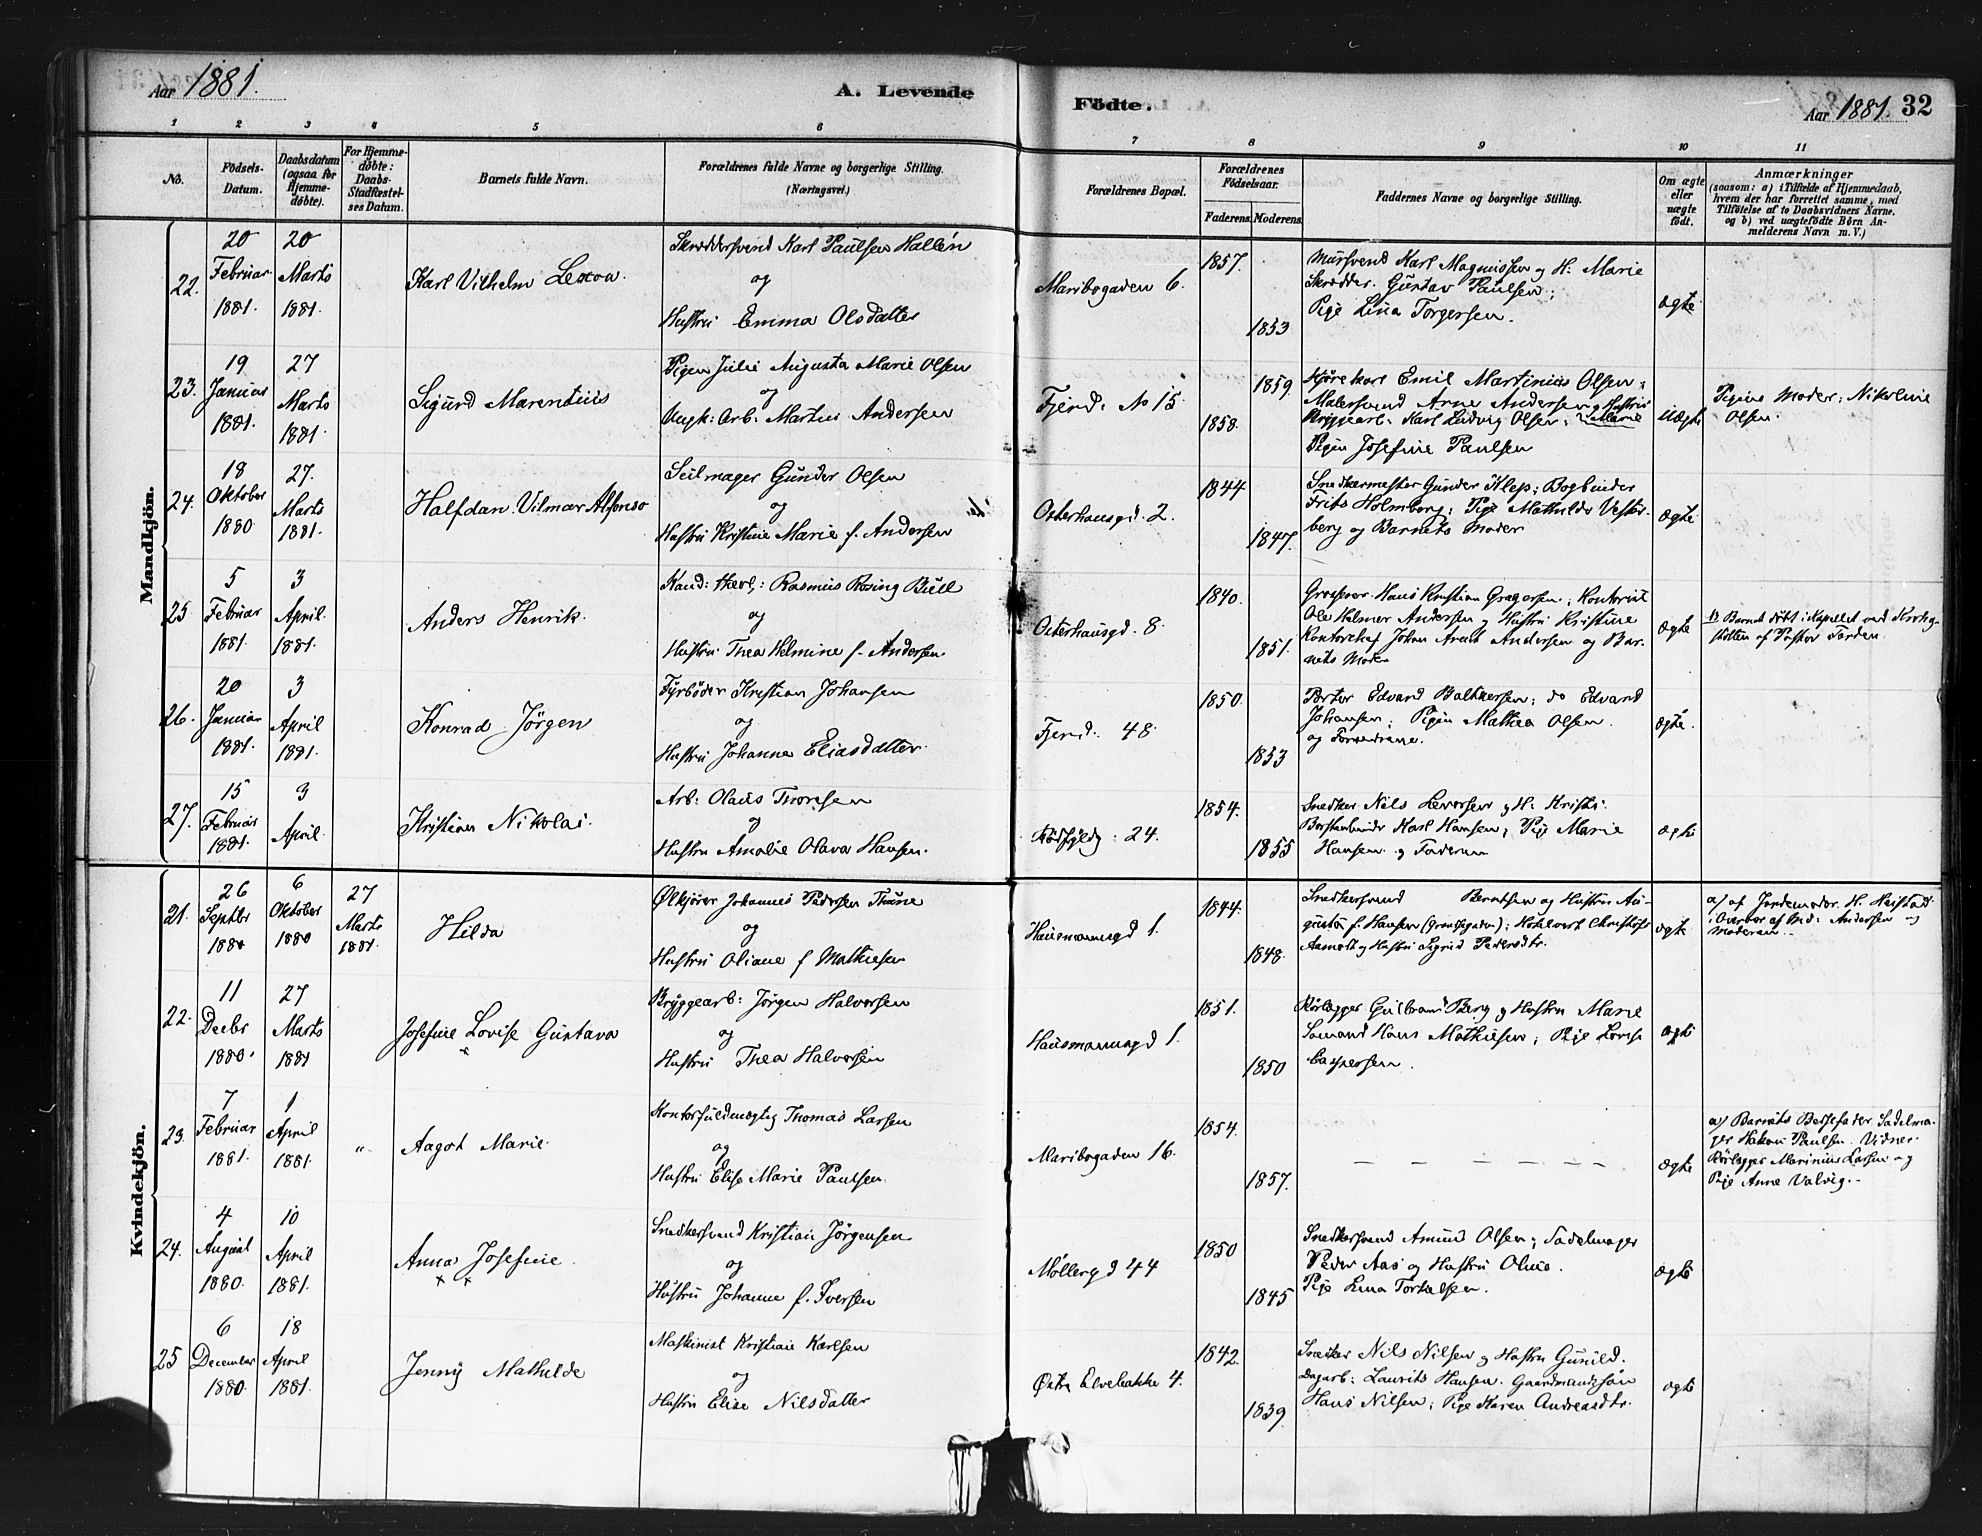 Aar 1881.
A. Levende
Födte.
Aar 1881. 32
1 2 3 4 5 6 7 8 9 10 11
No.
Födsels-
Datum.
Daabsdatum
(ogsaa for
Hjemme-
døbte).
For Hjemme-
døbte:
Daabs-
Stadfæstel-
ses Datum.
Barnets fulde Navn.
Forældrenes fulde Navne og borgerlige Stilling.
(Næringsvei.)
Forældrenes Bopæl.
Forældrenes
Fødselsaar.
Faderens. Moderens.
Faddernes Navne og borgerlige Stilling.
Om ægte
eller
uægte
født.
Anmærkninger
(saasom: a) i Tilfælde af Hjemmedaab,
hvem der har forrettet samme, med
Tilføielse af to Daabsvidners Navne,
og b) ved uægtefødte Børn An-
melderens Navn m. V.)
Mandkjön.
22.
20
Februar
1881.
20
Marts
1881.
Karl Vilhelm
Skræddersvend Karl Paulsen Hallén
og
Hustru Emma Olsdatter
Maribogaden 6.
1857.
1853
Mursvend Karl Magnussen og H. Marie
Skrædder Gustav Paulsen;
Pige Lina Torgersen.
ægte
23.
19
Januar
1881.
27
Marts
1881.
Sigurd Marentius
Pigen Julie Augusta Marie Olsen
og
Ungk: Arb: Martin Andersen
Fjerd: No 15.
1859.
1858.
Kjørekarl Emil Martinius Olsen;
Malersvend Arne Andersen og Hustru
Bryggearb: Karl Ludvig Olsen; Marie
Pigen Josefine Paulsen
uægte
Pigens Moder: Nikoline
Olsen.
24.
18
Oktober
1880
27.
Marts
1881.
Halfdan Vilmar Alfonso
Seilmager Gunder Olsen
og
Hustru Kristine Marie f. Andersen
Osterhausgd. 2.
1844
1847.
Snedkermester Gunder Klep; Bogbinder
Frits Holmborg; Pige Mathilde Vester-
berg og Barnets Moder
ægte
25
5
Februar
1881.
3
April.
1881.
Anders Henrik.
Kand: theol: Rasmus Rosing Bull
og
Hustru Thea Helmine f. Andersen
Osterhausgd. 8.
1840.
1851.
Grosserer Hans Kristian Gregersen; Kontorist
Ole Helmer Andersen og Hustru Kristine
Kontorchef Johan Arent Andersen og Bar-
nets Moder
ægte
Barnet døbt i Kapellet ved Krohg-
støtten af Pastor Færden.
26.
20
Januar
1881.
3
April
1881.
Konrad Jörgen
Fyrböder Kristian Johansen
og
Hustru Johanne Eliasdatter.
Fjerd: 48.
1850.
1853
Porter Edvard Baltzersen; do Edvard
Johansen; Pigen Mathea Olsen.
og Forældrene.
ægte.
27.
15
Februar
1881.
3
April.
Kristian Nikolai.
Arb: Olaus Thoresen
og
Hustru Amalie Olava Hansen.
24.
1854.
1855
Snedker Nils Leversen og H. Kristi:
Børstenbinder Karl Hansen; Pige Marie
Hansen og Faderen
ægte
Kvindekjön.
21.
26
Septbr
1880
6
Oktober
1880
27
Marts
1881.
Hilda
Ølkjører Johannes Pedersen Thune
og
Hustru Oliane f Mathiesen
Hausmannsgd 1.
1844.
1848.
Snedkersvend Berntsen og Hustru Au-
gusta f. Hansen (Grændsegaden); Hotelvert Christoffer
Aamodt og Hustru Sigrid Pedersdtr.
ægte
a/ af Jordemoder H. Neistad
i Overvær af Md: Andersen og
Moderen.
22.
11
Decbr
1880.
27
Marts
1881
Josefine Lovise Gustava
Bryggearb: Jörgen Halvorsen
og
Hustru Thea Halvorsen
Hausmannsgd 1.
1851.
1850
Rörlægger Gulbrand Berg og Hustru Marie
Sömand Hans Mathiesen; Pige Lovise
Caspersen.
ægte
23.
7
Februar
1881.
1
April
1881.
„
Aagot Marie.
Kontorfuldmægtig Thomas Larsen
og
Hustru Elise Marie Paulsen.
Maribogaden 16.
1854.
1857.
— — — — — — —
ægte
a/ Barnets Bestefader Sadelma-
ger Hakon Paulsen. Vidner:
Rörlægger Marinius Larsen og
Pige Anne Valvig.
24.
4
August
1880.
10
April
1881.
Anna Josefine.
x x
Snedkersvend Kristian Jörgensen
og
Hustru Johanne f. Iversen
Møllergd 44
1850
1845
Snedkersvend Amund Olsen; Sadelmager
Peder Aas og Hustru Oline.
Pige Lina Torkelsen.
ægte
25
6
December
1880.
18
April
1881.
Jenny Mathilde
Maskinist Kristian Karlsen
og
Hustru Elise Nilsdatter
Østre Elvebakke 4.
1842.
1839.
Snedker Nils Nilsen og Hustru Gunild.
Dagarb: Laurits Hansen. Gaardmandssøn
Hans Nilsen; Pige Karen Andreasdtr.
ægte